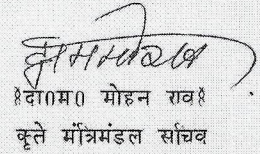 (दा0म0 मोहन राव)
कृते मंत्रिमंडल सचिव